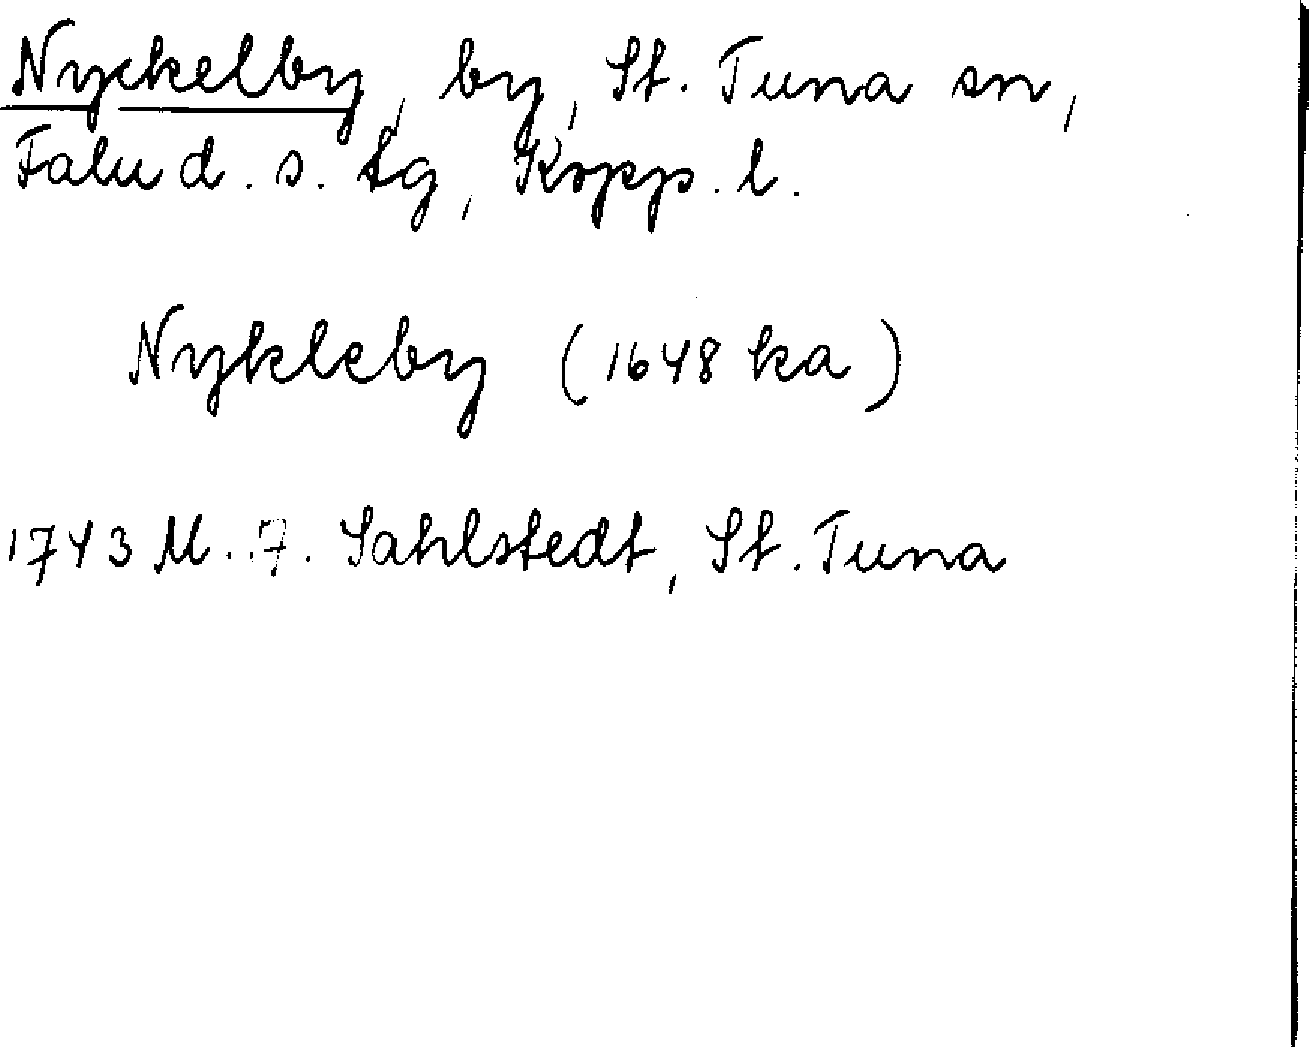 Nyckelby, by, St. Tuna sn,
Falu d. s. tg, Kopp. l.
Nykleby (1648 ka)
1743 M. . 7. Sahlstedt, St. Tuna